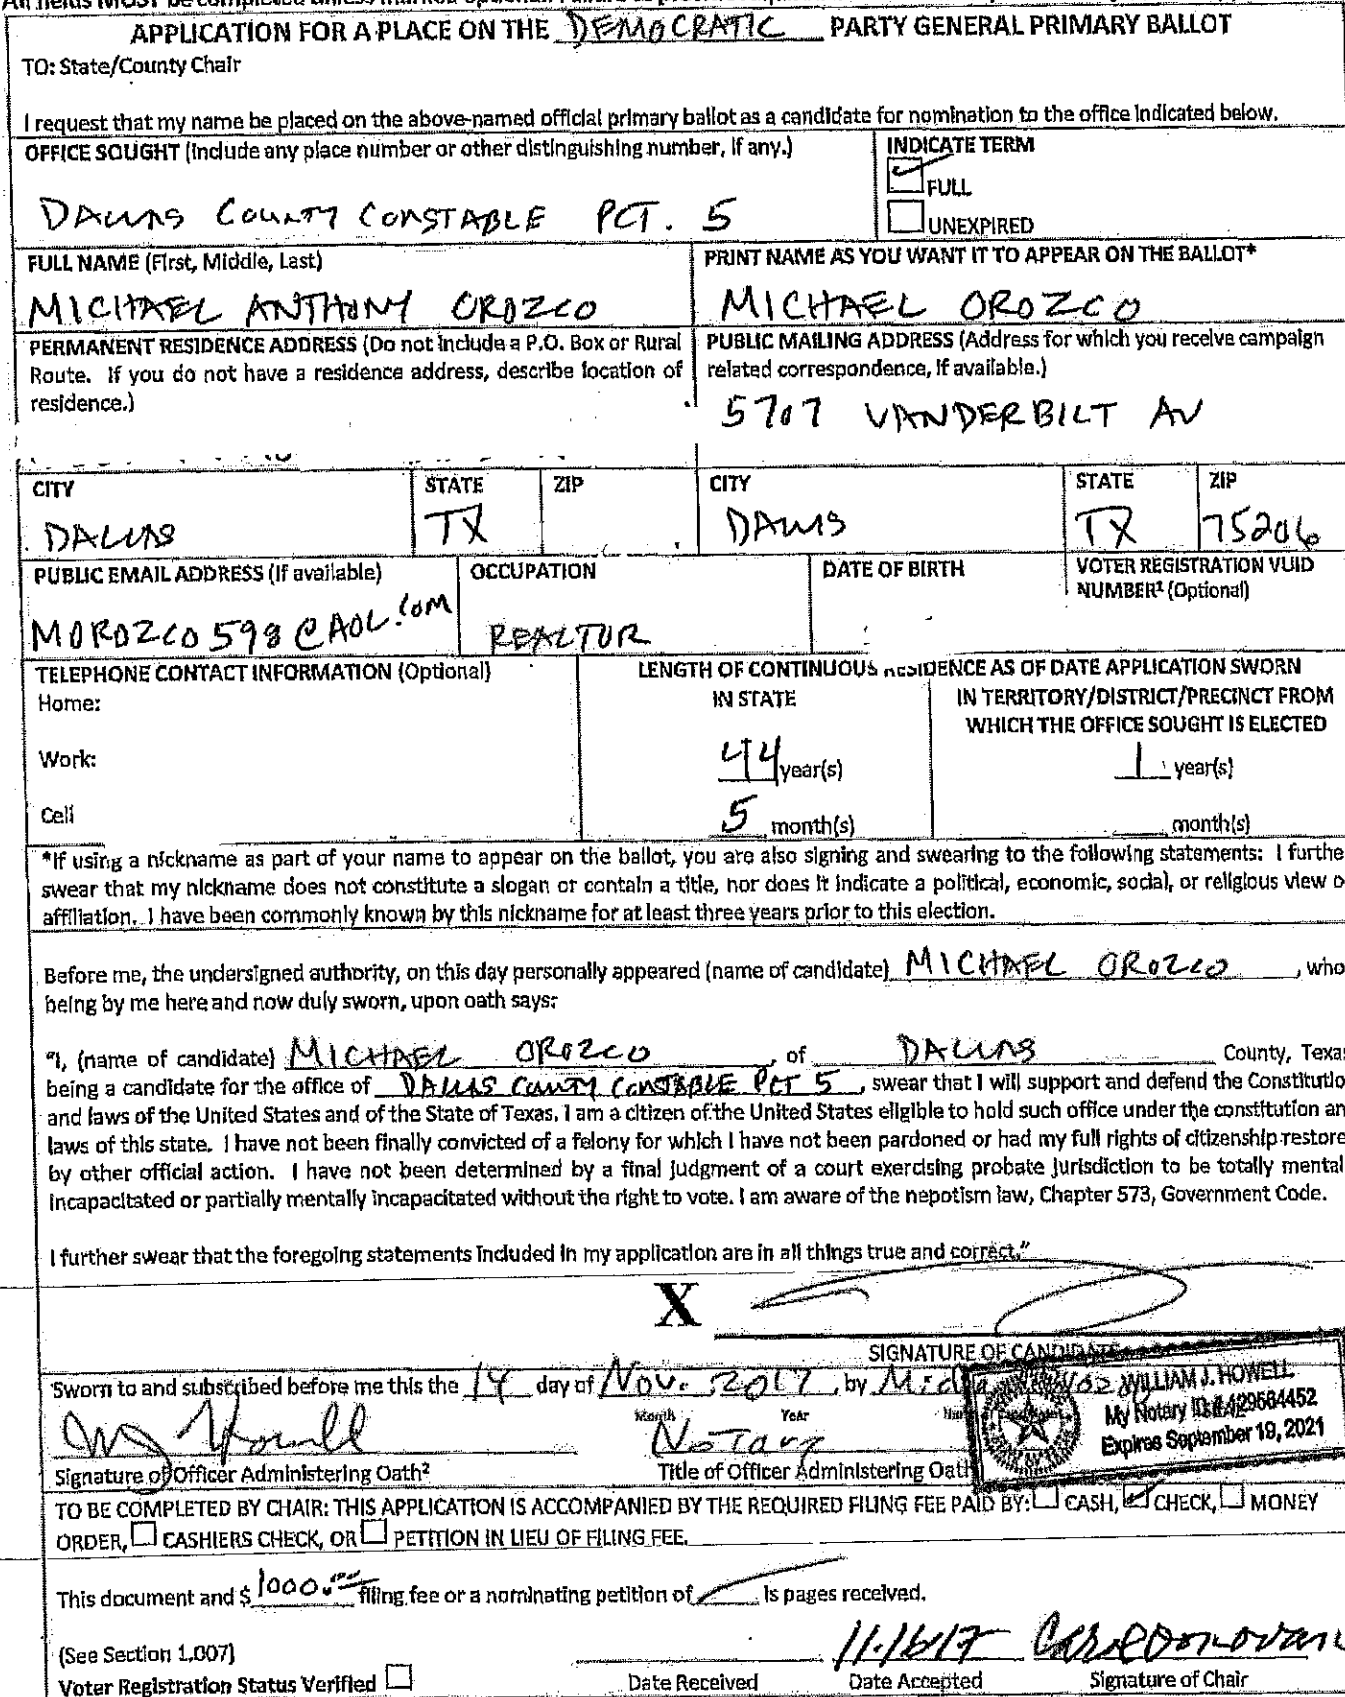 APPLICATION FOR A PLACE ON THE DEMOCRATIC PARTY GENERAL PRIMARY BALLOT
TO: State/County Chair
I request that my name be placed on the above-named official primary ballot as a candidate for nomination to the office indicated below.
OFFICE SOUGHT (Include any place number or other distinguishing number, if any.)
DALLAS COUNTY CONSTABLE PCT. 5
INDICATE TERM
FULL
UNEXPIRED
FULL NAME (First, Middle, Last)
MICHAEL ANTHONY OROZCO
PRINT NAME AS YOU WANT IT TO APPEAR ON THE BALLOT*
MICHAEL OROZCO
PERMANENT RESIDENCE ADDRESS (Do not include a P.O. Box or Rural
Route. If you do not have a residence address, describe location of
residence.)
PUBLIC MAILING ADDRESS (Address for which you receive campaign
related correspondence, if available.)
5707 VANDERBILT AV
CITY
DALLAS
STATE
TX
ZIP
CITY
DALLAS
STATE
TX
ZIP
75206
PUBLIC EMAIL ADDRESS (If available)
MOROZCO598@AOL.COM
OCCUPATION
REALTOR
DATE OF BIRTH
VOTER REGISTRATION VUID
NUMBER¹ (Optional)
TELEPHONE CONTACT INFORMATION (Optional)
Home:
Work:
Cell
LENGTH OF CONTINUOUS RESIDENCE AS OF DATE APPLICATION SWORN
IN STATE
44 year(s)
5 month(s)
IN TERRITORY/DISTRICT/PRECINCT FROM
WHICH THE OFFICE SOUGHT IS ELECTED
1 year(s)
month(s)
*If using a nickname as part of your name to appear on the ballot, you are also signing and swearing to the following statements: I furthe
swear that my nickname does not constitute a slogan or contain a title, nor does it indicate a political, economic, social, or religious view o
affiliation. I have been commonly known by this nickname for at least three years prior to this election.
Before me, the undersigned authority, on this day personally appeared (name of candidate) MICHAEL OROZCO, who
being by me here and now duly sworn, upon oath says:
"I, (name of candidate) MICHAEL OROZCO, of DALLAS County, Texas
being a candidate for the office of DALLAS COUNTY CONSTABLE PCT 5, swear that I will support and defend the Constitutio
and laws of the United States and of the State of Texas. I am a citizen of the United States eligible to hold such office under the constitution an
laws of this state. I have not been finally convicted of a felony for which I have not been pardoned or had my full rights of citizenship restore
by other official action. I have not been determined by a final judgment of a court exercising probate jurisdiction to be totally mental
incapacitated or partially mentally incapacitated without the right to vote. I am aware of the nepotism law, Chapter 573, Government Code.
I further swear that the foregoing statements included in my application are in all things true and correct."
X
SIGNATURE OF CANDIDATE
Sworn to and subscribed before me this the 14 day of Nov. 2017, by
Month Year
WILLIAM J. HOWELL
My Notary ID # 129564452
Expires September 19, 2021
Notary
Signature of Officer Administering Oath²
Title of Officer Administering Oath
TO BE COMPLETED BY CHAIR: THIS APPLICATION IS ACCOMPANIED BY THE REQUIRED FILING FEE PAID BY: CASH, CHECK, MONEY
ORDER, CASHIERS CHECK, OR PETITION IN LIEU OF FILING FEE.
This document and $ 1000.00 filing fee or a nominating petition of is pages received.
(See Section 1.007)
Voter Registration Status Verified
Date Received
11/16/17
Date Accepted
Carol Donovan
Signature of Chair